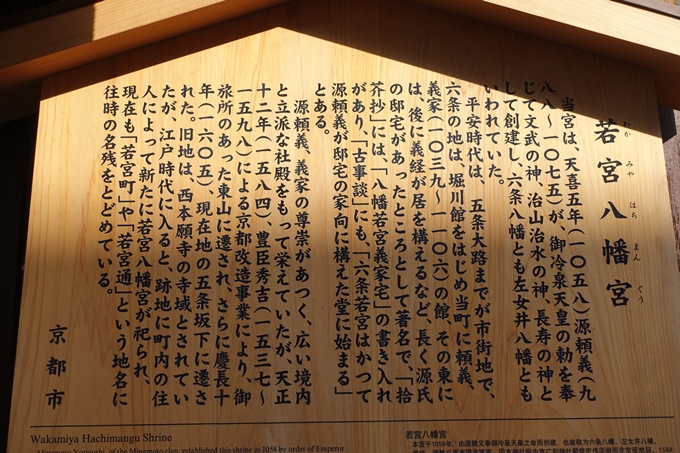 若宮八幡宮
わか みや はち まん ぐう
当宮は、天喜五年(一〇五八)源頼義(九
八八~一〇七五)が、御冷泉天皇の勅を奉
じて文武の神、治山治水の神、長寿の神と
して創建し、六条八幡とも左女井八幡とも
いわれていた。
平安時代は、五条大路までが市街地で、
六条の地は、堀川館をはじめ当町に頼義、
義家(一〇三九~一一〇六)の館、その東に
は、後に義経が居を構えるなど、長く源氏
の邸宅があったところとして著名で、「拾
芥抄」には、「八幡若宮義家宅」の書き入れ
があり、「古事談」にも、「六条若宮はかつて
源頼義が邸宅の家向に構えた堂に始まる」
とある。
源頼義、義家の尊崇があつく、広い境内
と立派な社殿をもって栄えていたが、天正
十二年(一五八四)、豊臣秀吉(一五三七~
一五九八)による京都改造事業により、御
旅所のあった東山に遷され、さらに慶長十
年(一六〇五)、現在地の五条坂下に遷さ
れた。旧地は、西本願寺の寺域とされてい
たが、江戸時代に入ると、跡地に町内の住
人によって新たに若宮八幡宮が祀られ、
現在も「若宮町」や「若宮通」という地名に
往時の名残をとどめている。
京都市
Wakamiya Hachimangu Shrine
Minamoto Yoriyoshi, of the Minamoto clan, established this shrine in 1058 by order of Emperor
若宮八幡宮
本宫于1058年,由源赖义奉御冷泉天皇之命而创建,也被称为六条八幡、左女井八幡。